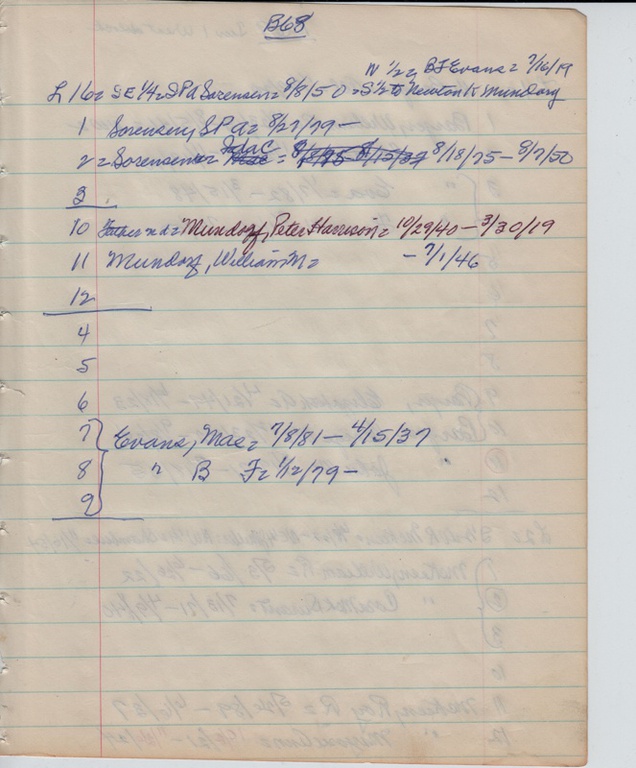 B68
N 1/2 = BF Evans = 7/16/19
L 16 = SE 1/4 = S P A Sorensen = 8/8/50 = S 1/2 to Newton K Mundorf
1 Sorensen, S P A = 8/27/79 -
2 = Sorensen = Ida C = 8/18/75 - 8/7/50
3
10 Father n d = Mundorf, Peter Harrison = 10/29/40 - 3/30/19
11 Mundorf, William N = - 7/1/46
12
4
5
6
7 Evans, Mae = 7/8/81 - 4/15/37
8 " B F = 1/12/79 -
9